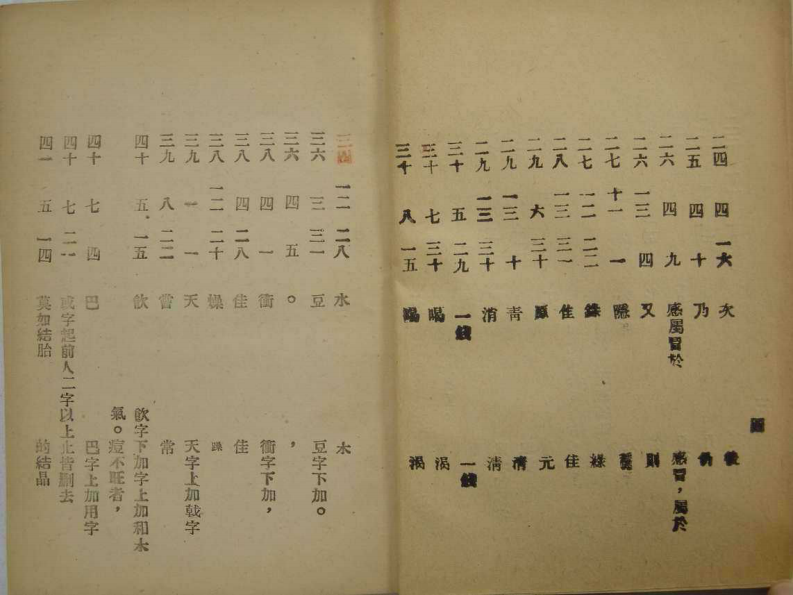 二四 四 一六
二五 四 十 乃 仍
二六 四 九 感屬冒於 感冒，屬於
二六 一三 四 又 則
二七 十一 一 隱
二七 一二 二二 綠
二八 一三 佳
二九 六 三十 原 元
二九 一三 十 青 清
二九 一三 三十 消 清
三十 五 二九 一錢 一錢
三十 七 三十 喝 渴
三十 八 一五 喝 渴
一二 二八 水 木
三六 三 三一 豆 豆字下加。
三六 四 五 。 ，
三八 四 一 衝 衝字下加，
三八 四 二八 佳 佳
三八 一二 二十 燥 躁
三九 一 一 天 天字上加戟字
三九 八 二二 嘗 常
四十 五. 一五 飲 飲字下加字上加和水
氣。痘不旺者，
四十 七 四 巴 巴字上加用字
四十 七 二一 或字起前人二字以上止皆刪去
四一 五 一四 莫如結胎 的結晶